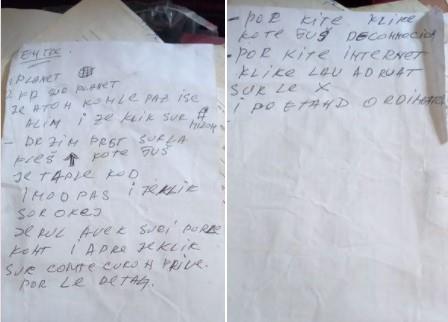 ENTRE
1 PLANET
2 FD SUR PLANET
JE ATOH KOMLE PAZ ISE
ALIM I JE KLIK SUR
MIZOM
- DRZIM PRST SUR LA
FLEŠ ↑ KOTE GUŠ
JE TAPLE KOD
I MOD PAS I JEKLIK
SUR OKEJ
JE RUL AVEK SURI PUR LE
KONT I APRE JE KLIK
SUR COMTE CURON PRIVE.
POR LE DETAY.
- POR KITE KLIKE
KOTE GUŠ DECONNOCION
- POR KITE INTERNET
KLIKE LAU ADRUAT
SUR LE X
I PO ETAND ORDINATO